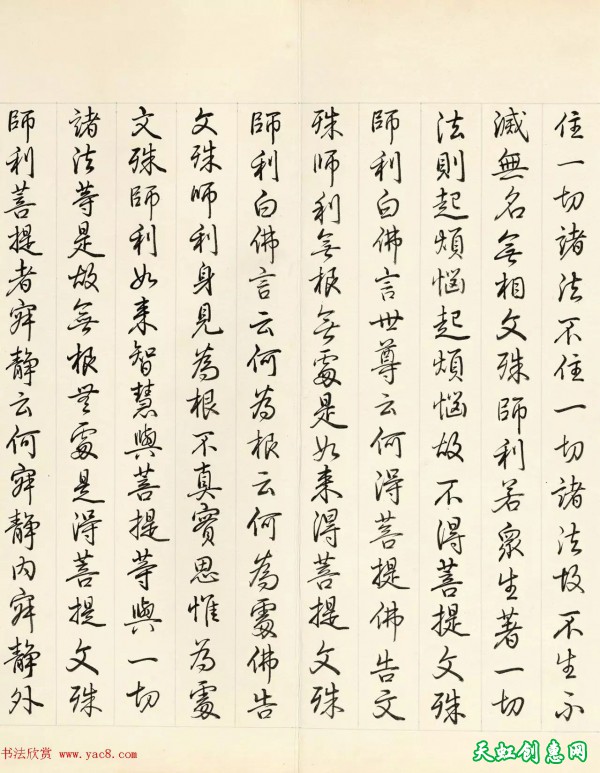 住一切諸法不住一切諸法故不生不
滅無名無相文殊師利若眾生著一切
法則起煩惱起煩惱故不得菩提文殊
師利白佛言世尊云何得菩提佛告文
殊師利無根無處是如来得菩提文殊
師利白佛言云何為根云何為處佛告
文殊師利身見為根不真實思惟為處
文殊師利如来智慧與菩提等與一切
諸法等是故無根無處是得菩提文殊
師利菩提者寂静云何寂静内寂静外
书法欣赏 www.yac8.com
天虹创惠网